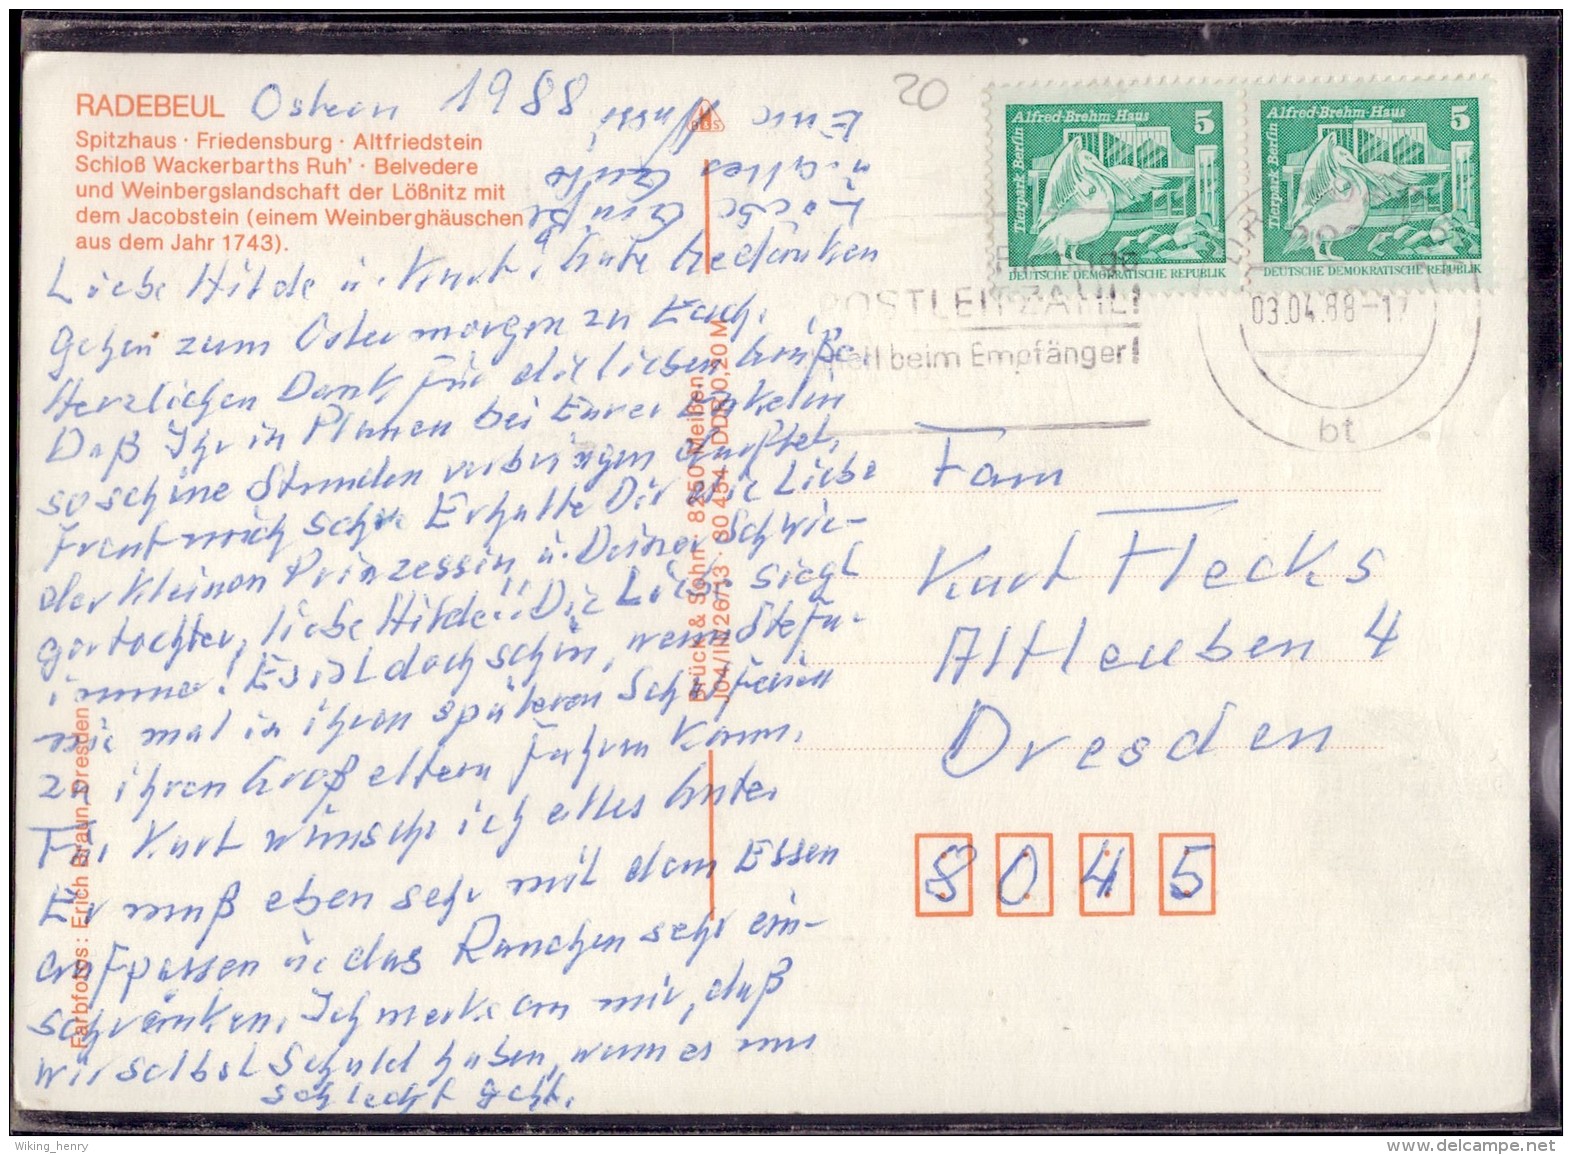 RADEBEUL
Spitzhaus · Friedensburg · Altfriedstein
Schloß Wackerbarths Ruh' · Belvedere
und Weinbergslandschaft der Lößnitz mit
dem Jacobstein (einem Weinberghäuschen
aus dem Jahr 1743).
Ostern 1988
Liebe Hilde u. Kurt! Gute Gedanken
gehen zum Ostermorgen zu Euch.
Herzlichen Dank für die lieben Grüße.
Daß Ihr in Plauen bei Eurer Enkelin
so schöne Stunden verbringen durftet,
freut mich sehr. Erhalte Dir die Liebe
der kleinen Prinzessin u. Deiner Schwie-
gertochter, liebe Hilde! Die Liebe siegt
immer! Es ist doch schön, wenn Stefa-
nie mal in ihren späteren Schulferien
zu ihren Großeltern fahren kann.
Für Kurt wünsche ich alles Gute.
Er muß eben sehr mit dem Essen
aufpassen u. das Rauchen sehr ein-
schränken. Ich merke an mir, daß
wir selbst Schuld haben, wenn es uns
schlecht geht.
Liebe Grüße
u. alles Gute
Eure
Farbfotos: Erich Braun, Dresden
Brück & Sohn · 8250 Meißen
J04/IV 26/13 · 80 454 DDR 0,20 M
20
Alfred-Brehm-Haus 5
Tierpark Berlin
DEUTSCHE DEMOKRATISCHE REPUBLIK
Alfred-Brehm-Haus 5
Tierpark Berlin
DEUTSCHE DEMOKRATISCHE REPUBLIK
POSTLEITZAHL!
beim Empfänger!
03.04.88-17
bt
Fam
Kurt Flecks
Altleuben 4
Dresden
8045
Wiking_henry
www.delcampe.net